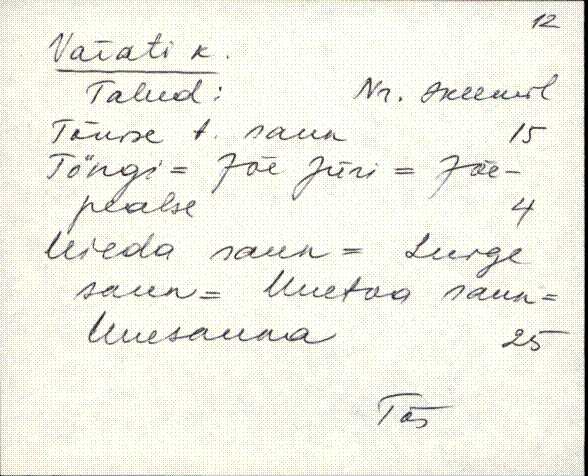 12
Varati k.
Talud: Nr. skeemil
Tõnise t. saun 15
Tõngi = Jõe Jüri = Jõe-
pealse 4
saun = Lurge
saun = Uuetoa saun =
Uuesauna 25
Tõs